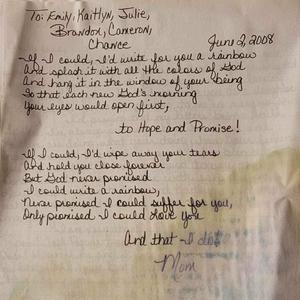 To: Emily, Kaitlyn, Julie,
Brandon, Cameron,
Chance
June 2, 2008
If I could, I'd write for you a rainbow
And splash it with all the colors of God
And hang it in the window of your being
So that each new God's morning
Your eyes would open first,
to Hope and Promise!
If I could, I'd wipe away your tears
And hold you close forever
But God never promised
I could write a rainbow,
Never promised I could suffer for you,
Only promised I could love you
And that I do.
Mom